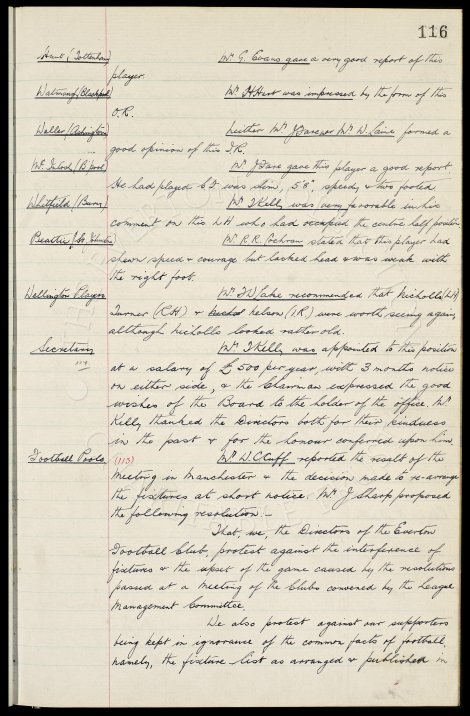 116
Hunt (Tottenham) Mr G. Evans gave a very good report of this
player.
Watmough (Blackpool) Mr H Hart was impressed by the form of this
O.R.
Waller (Ashington) Neither Mr J Fare or Mr W. Laine formed a
good opinion of this I.R.
Mr J Fare gave this player a good report.
He had played C.F. was slim, 5'8", speedy, & two footed.
Whitfield (Bury) Mr T Kelly was very favorable in his
comment on this LH who had occupied the centre half position
Beattie (St. Johnstone) Mr R.R. Cochran stated that this player had
shewn speed & courage but lacked head & was weak with
the right foot.
Wellington Players recommended that Nicholls (LH)
Turner (RH) & Nelson (IR) were worth seeing again,
although Nicholls looked rather old.
Secretary Mr T Kelly was appointed to this position
114
at a salary of £500 per year, with 3 months notice
on either side, & the Chairman expressed the good
wishes of the Board to the holder of the office. Mr
Kelly thanked the Directors both for their kindness
in the past & for the honour conferred upon him.
Football Pools (113) Mr W.C Cuff reported the result of the
Meeting in Manchester & the decision made to re-arrange
the fixtures at short notice. Mr J Sharp proposed
the following resolution:-
That, we, the Directors of the Everton
Football Club, protest against the interference of
fixtures & the upset of the game caused by the resolutions
passed at a Meeting of the Clubs convened by the League
Management Committee.
We also protest against our supporters
being kept in ignorance of the common facts of football,
namely, the fixture list as arranged & published in